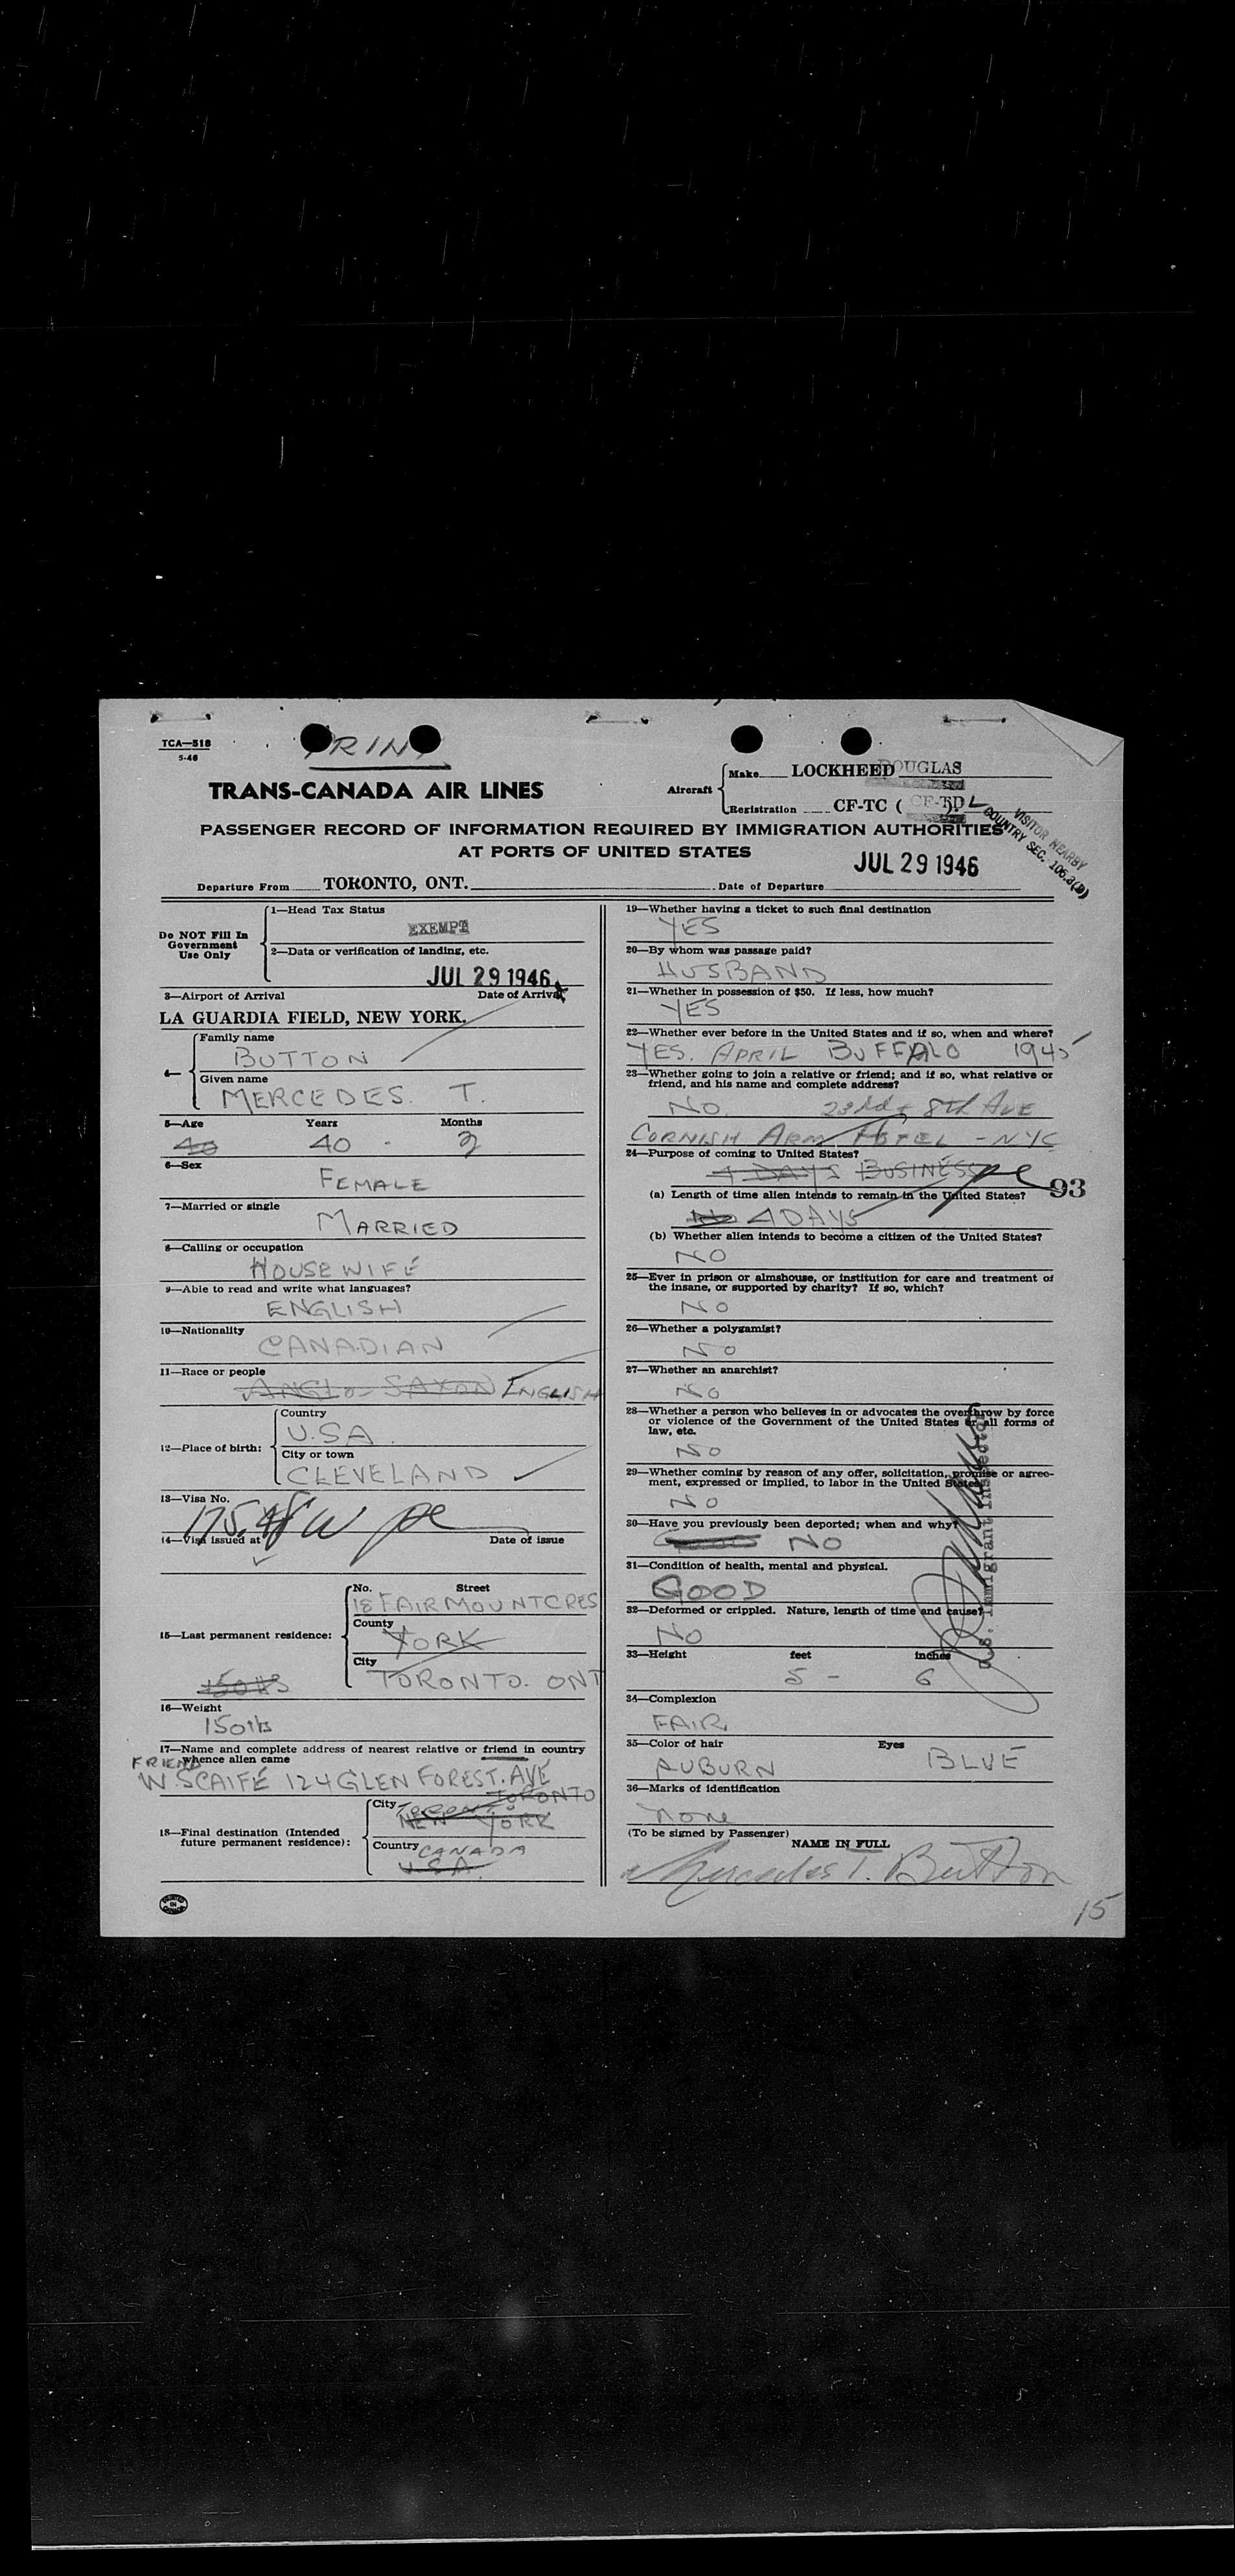 TCA—518
5-46
PRINT
TRANS-CANADA AIR LINES
Aircraft
Make LOCKHEED DOUGLAS
Registration CF-TC ( CF-TD L
PASSENGER RECORD OF INFORMATION REQUIRED BY IMMIGRATION AUTHORITIES
AT PORTS OF UNITED STATES
VISITOR NEARBY
COUNTRY SEC. 106.3(D)
JUL 29 1946
Departure From TORONTO, ONT. Date of Departure
Do NOT Fill In
Government
Use Only
1—Head Tax Status
EXEMPT
2—Data or verification of landing, etc.
JUL 29 1946
3—Airport of Arrival Date of Arrival
LA GUARDIA FIELD, NEW YORK.
4—
Family name
BUTTON
Given name
MERCEDES. T.
5—Age Years Months
40 40 -
6—Sex
FEMALE
7—Married or single
MARRIED
8—Calling or occupation
HOUSEWIFE
9—Able to read and write what languages?
ENGLISH
10—Nationality
CANADIAN
11—Race or people
ANGLO-SAXON ENGLISH
12—Place of birth:
Country
U.S.A.
City or town
CLEVELAND
13—Visa No.
14—Visa issued at Date of issue
15—Last permanent residence:
No. Street
18 FAIRMOUNT CRES
County
YORK
City
TORONTO. ONT
16—Weight
150 lb
17—Name and complete address of nearest relative or friend in country
whence alien came
FRIEND
W. SCAIFE 124 GLEN FOREST. AVE
TORONTO
18—Final destination (Intended
future permanent residence):
City TORONTO
NEW YORK
Country CANADA
U.S.A.
19—Whether having a ticket to such final destination
YES
20—By whom was passage paid?
HUSBAND
21—Whether in possession of $50. If less, how much?
YES
22—Whether ever before in the United States and if so, when and where?
YES. APRIL BUFFALO 1945
23—Whether going to join a relative or friend; and if so, what relative or
friend, and his name and complete address?
NO. 23rd & 8th AVE
CORNISH ARMS HOTEL - NYC
24—Purpose of coming to United States?
4 DAYS BUSINESS
93
(a) Length of time alien intends to remain in the United States?
No 4 DAYS
(b) Whether alien intends to become a citizen of the United States?
NO
25—Ever in prison or almshouse, or institution for care and treatment of
the insane, or supported by charity? If so, which?
NO
26—Whether a polygamist?
NO
27—Whether an anarchist?
NO
28—Whether a person who believes in or advocates the overthrow by force
or violence of the Government of the United States or all forms of
law, etc.
NO
29—Whether coming by reason of any offer, solicitation, promise or agree-
ment, expressed or implied, to labor in the United States?
NO
30—Have you previously been deported; when and why?
NO
31—Condition of health, mental and physical.
GOOD
32—Deformed or crippled. Nature, length of time and cause?
NO
U.S. Immigrant Inspector
33—Height feet inches
5 - 6
34—Complexion
FAIR
35—Color of hair Eyes
AUBURN BLUE
36—Marks of identification
NONE
(To be signed by Passenger)
NAME IN FULL
Mercedes T. Button
15